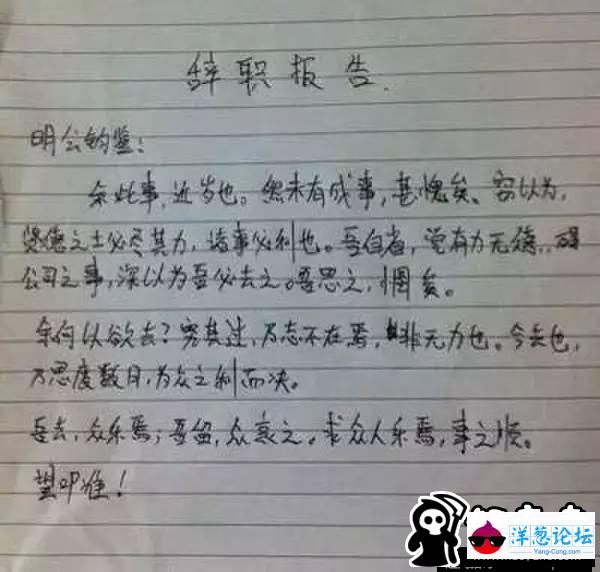 辞职报告.
明公钧鉴：
余此事,近岁也。然未有成事,甚愧矣、窃以为,
贤德之士必尽其力,诸事必利也。吾自省,觉有力无德,碍
公司之事,深以为吾必去之。吾思之,惆矣。
余何以欲去？究其过,乃志不在焉,非无力也。今去也,
乃思度数月,为众之利而决。
吾去,众乐焉;吾留,众哀之。求众人乐焉,事之顺。
望叩准！
洋葱论坛
Yang-Cong.com